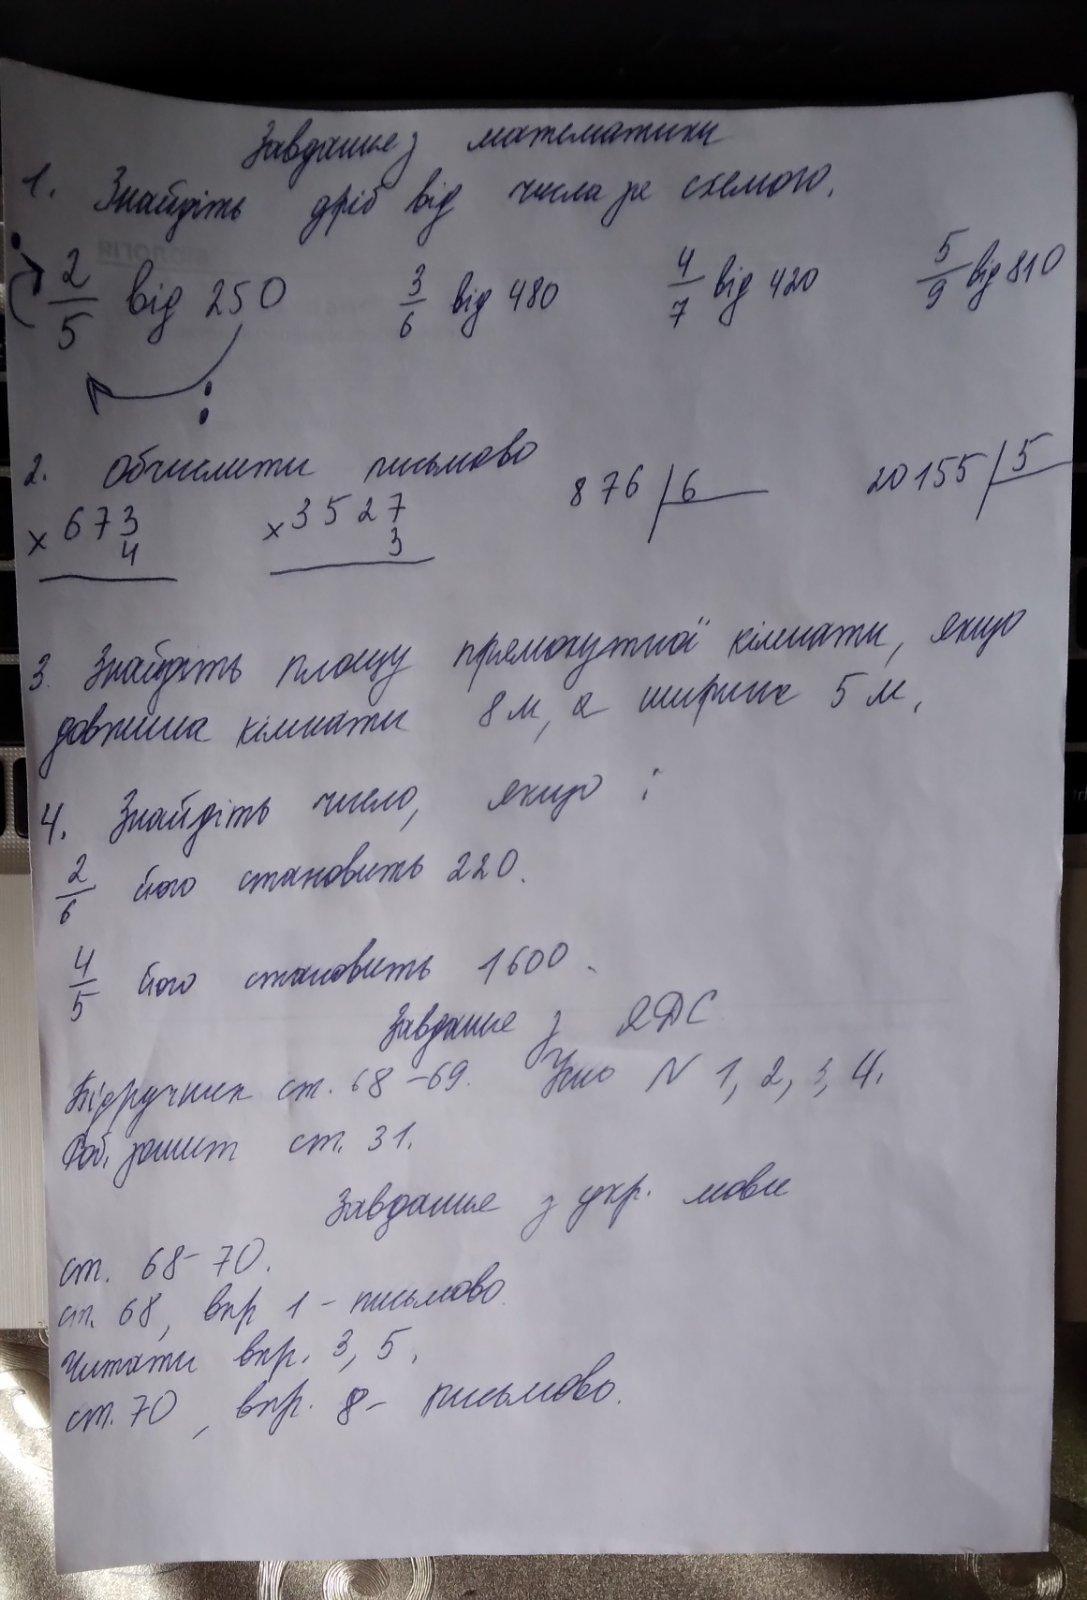 Завдання з математики
1. Знайдіть дріб від числа за схемою.
2/5 від 250 3/6 від 480 4/7 від 420 5/9 від 810
:
2. Обчислити письмово
× 673 × 3527 876 | 6 20155 | 5
4 3
3. Знайдіть площу прямокутної кімнати, якщо
довжина кімнати 8 м, а ширина 5 м.
4. Знайдіть число, якщо :
2/6 його становить 220.
4/5 його становить 1600.
Завдання з ЯДС
Підручник ст. 68-69. Усно N 1, 2, 3, 4.
Роб. зошит ст. 31.
Завдання з укр. мови
ст. 68-70.
ст. 68, впр 1 - письмово.
Читати впр. 3, 5.
ст. 70, впр. 8 - письмово.